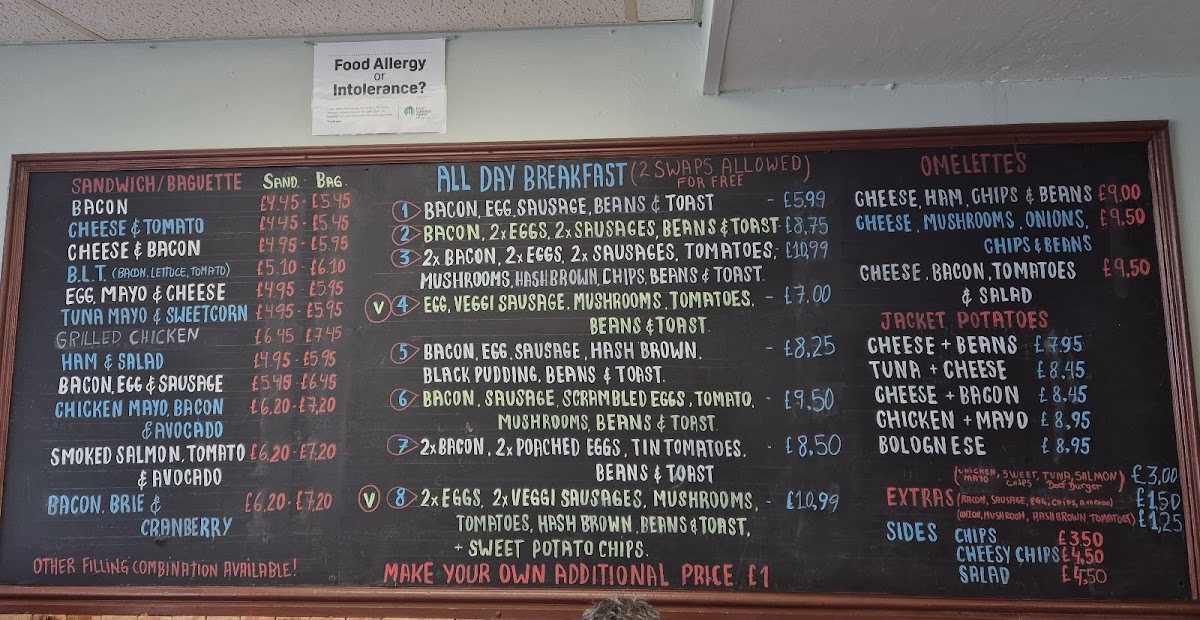 Food Allergy
or
Intolerance?
SANDWICH/BAGUETTE SAND. - BAG.
BACON £4.45 - £5.45
CHEESE & TOMATO £4.45 - £5.45
CHEESE & BACON £4.95 - £5.95
B.L.T. (BACON, LETTUCE, TOMATO) £5.10 - £6.10
EGG, MAYO & CHEESE £4.95 - £5.95
TUNA MAYO & SWEETCORN £4.95 - £5.95
GRILLED CHICKEN £6.45 £7.45
HAM & SALAD £4.95 - £5.95
BACON, EGG & SAUSAGE £5.45 - £6.45
CHICKEN MAYO, BACON £6,20 - £7,20
& AVOCADO
SMOKED SALMON, TOMATO £6.20 - £7.20
& AVOCADO
BACON, BRIE & £6.20 - £7.20
CRANBERRY
OTHER FILLING COMBINATION AVAILABLE!
ALL DAY BREAKFAST (2 SWAPS ALLOWED)
FOR FREE
1 BACON, EGG, SAUSAGE, BEANS & TOAST - £5.99
2 BACON, 2x EGGS, 2x SAUSAGES, BEANS & TOAST - £8,75
3 2x BACON, 2x EGGS, 2x SAUSAGES, TOMATOES, - £10,99
MUSHROOMS, HASH BROWN, CHIPS, BEANS & TOAST.
V 4 EGG, VEGGI SAUSAGE, MUSHROOMS, TOMATOES, - £7.00
BEANS & TOAST.
5 BACON, EGG, SAUSAGE, HASH BROWN, - £8,25
BLACK PUDDING, BEANS & TOAST.
6 BACON, SAUSAGE, SCRAMBLED EGGS, TOMATO, - £9,50
MUSHROOMS, BEANS & TOAST.
7 2x BACON, 2x POACHED EGGS, TIN TOMATOES, - £8,50
BEANS & TOAST
V 8 2x EGGS, 2x VEGGI SAUSAGES, MUSHROOMS, - £10,99
TOMATOES, HASH BROWN, BEANS & TOAST,
+ SWEET POTATO CHIPS.
MAKE YOUR OWN ADDITIONAL PRICE £1
OMELETTES
CHEESE, HAM, CHIPS & BEANS £9,00
CHEESE, MUSHROOMS, ONIONS, £9,50
CHIPS & BEANS
CHEESE, BACON, TOMATOES £9,50
& SALAD
JACKET POTATOES
CHEESE + BEANS £7.95
TUNA + CHEESE £8,45
CHEESE + BACON £8.45
CHICKEN + MAYO £8,95
BOLOGNESE £8.95
(CHICKEN, SWEET, TUNA, SALMON) £3,00
MAYO CHIPS Beef Burger
EXTRAS (BACON, SAUSAGE, EGG, CHIPS, AVOCADO) £1,50
(ONION, MUSHROOM, HASH BROWN, TOMATOES) £1,25
SIDES CHIPS £3.50
CHEESY CHIPS £4,50
SALAD £4,50